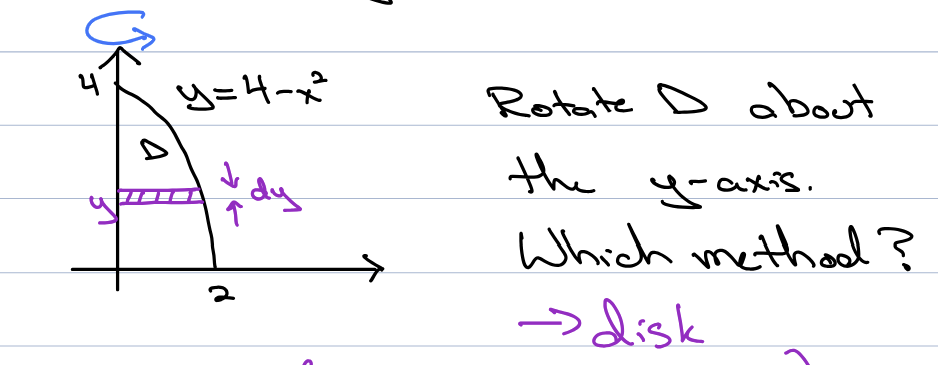 4
y=4-x²
D
y
dy
2
Rotate D about
the y-axis.
Which method?
→ disk